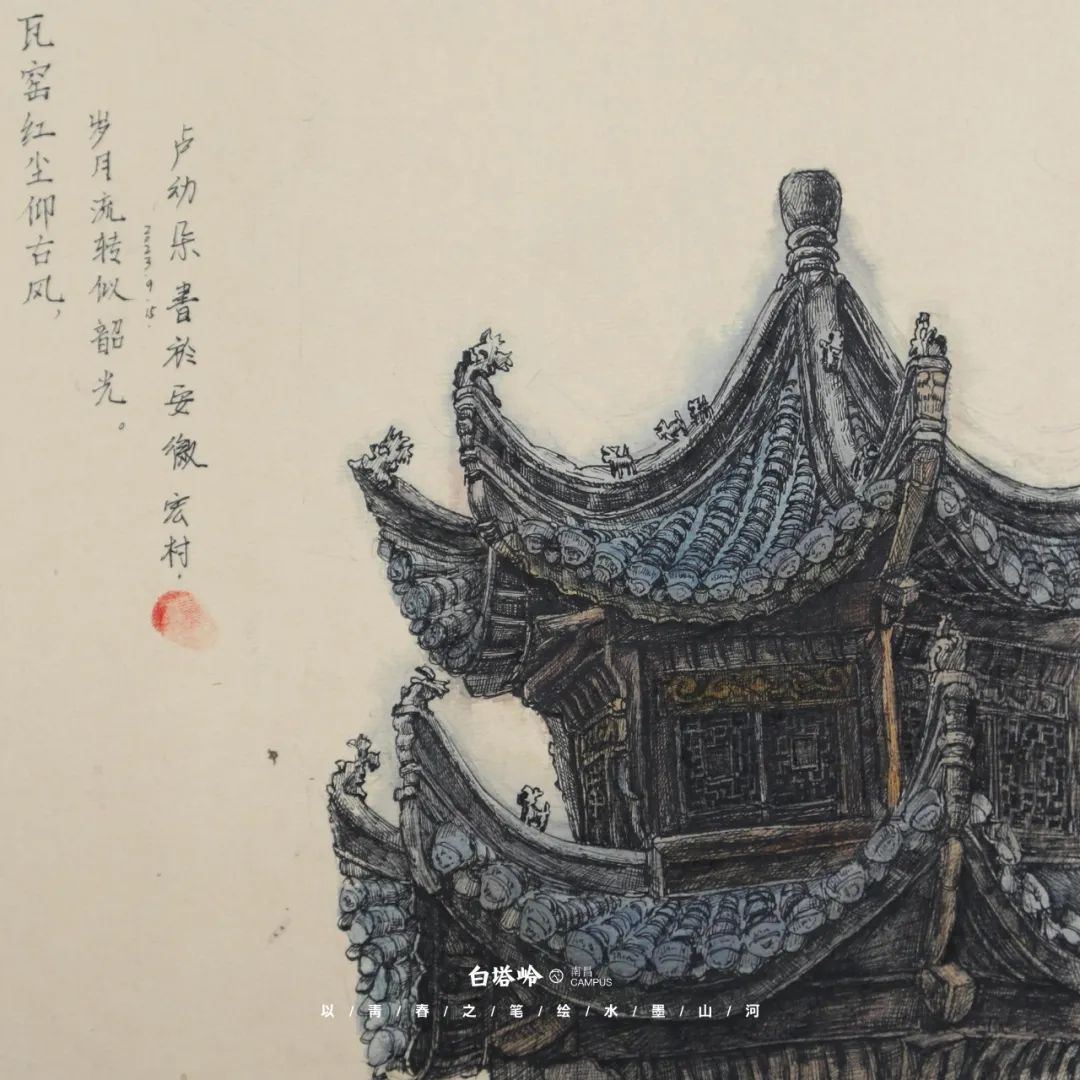 瓦窑红尘仰古风，
岁月流转似韶光。
2023.9.15.
卢幼朵書於安徽宏村.
白塔岭 南昌
CAMPUS
以/青/春/之/笔/绘/水/墨/山/河